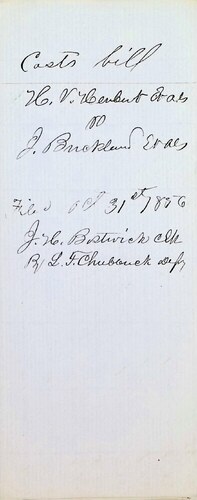 Costs bill
H. V. Herbert Et als
vs
J. Brickland Et als
Filed Oct 31st 1856
J. H. Bostwick Clk
By L. F. Chubbuck Depty